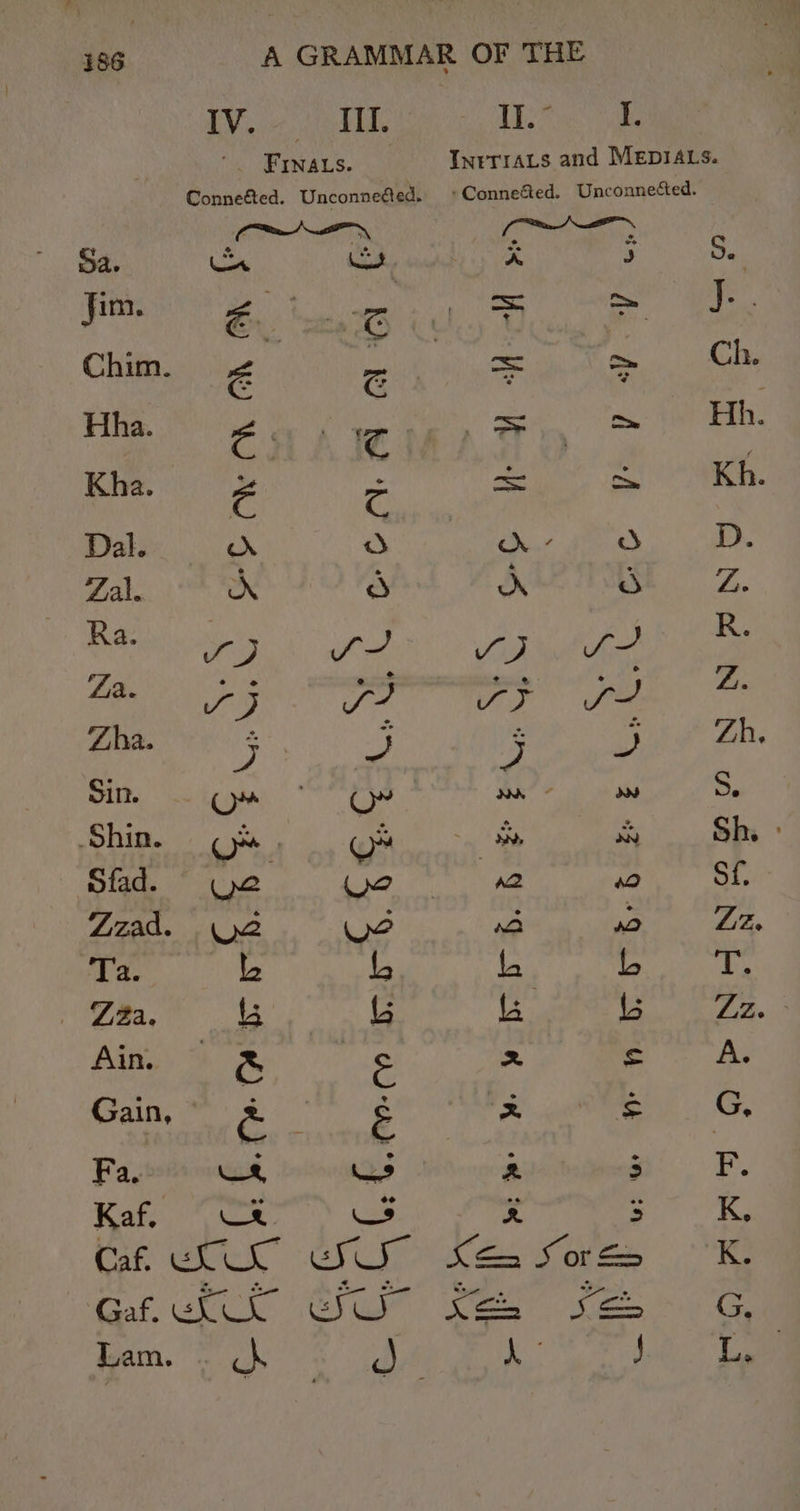 186 A GRAMMAR OF THE
IV. III. II. I.
FINALS. INITIALS and MEDIALS.
Connected. Unconnected. Connected. Unconnected.
Sa. ـث ث ـثـ ثـ S.
Jim. ـج ج ـجـ جـ J.
Chim. ـچ چ ـچـ چـ Ch.
Hha. ـح ح ـحـ حـ Hh.
Kha. ـخ خ ـخـ خـ Kh.
Dal. ـد د ـد د D.
Zal. ـذ ذ ـذ ذ Z.
Ra. ـر ر ـر ر R.
Za. ـز ز ـز ز Z.
Zha. ـژ ژ ـژ ژ Zh.
Sin. ـس س ـسـ سـ S.
Shin. ـش ش ـشـ شـ Sh.
Sfad. ـص ص ـصـ صـ Sf.
Zzad. ـض ض ـضـ ضـ Zz.
Ta. ـط ط ـطـ ط T.
Zza. ـظ ظ ـظـ ظ Zz.
Ain. ـع ع ـعـ عـ A.
Gain. ـغ غ ـغـ غـ G.
Fa. ـف ف ـفـ فـ F.
Kaf. ـق ق ـقـ قـ K.
Caf. ـك ك ـكـ كـ or كـ K.
Gaf. ـڭ ڭ ـڭـ ڭـ G.
Lam. ـل ل ـلـ لـ L.